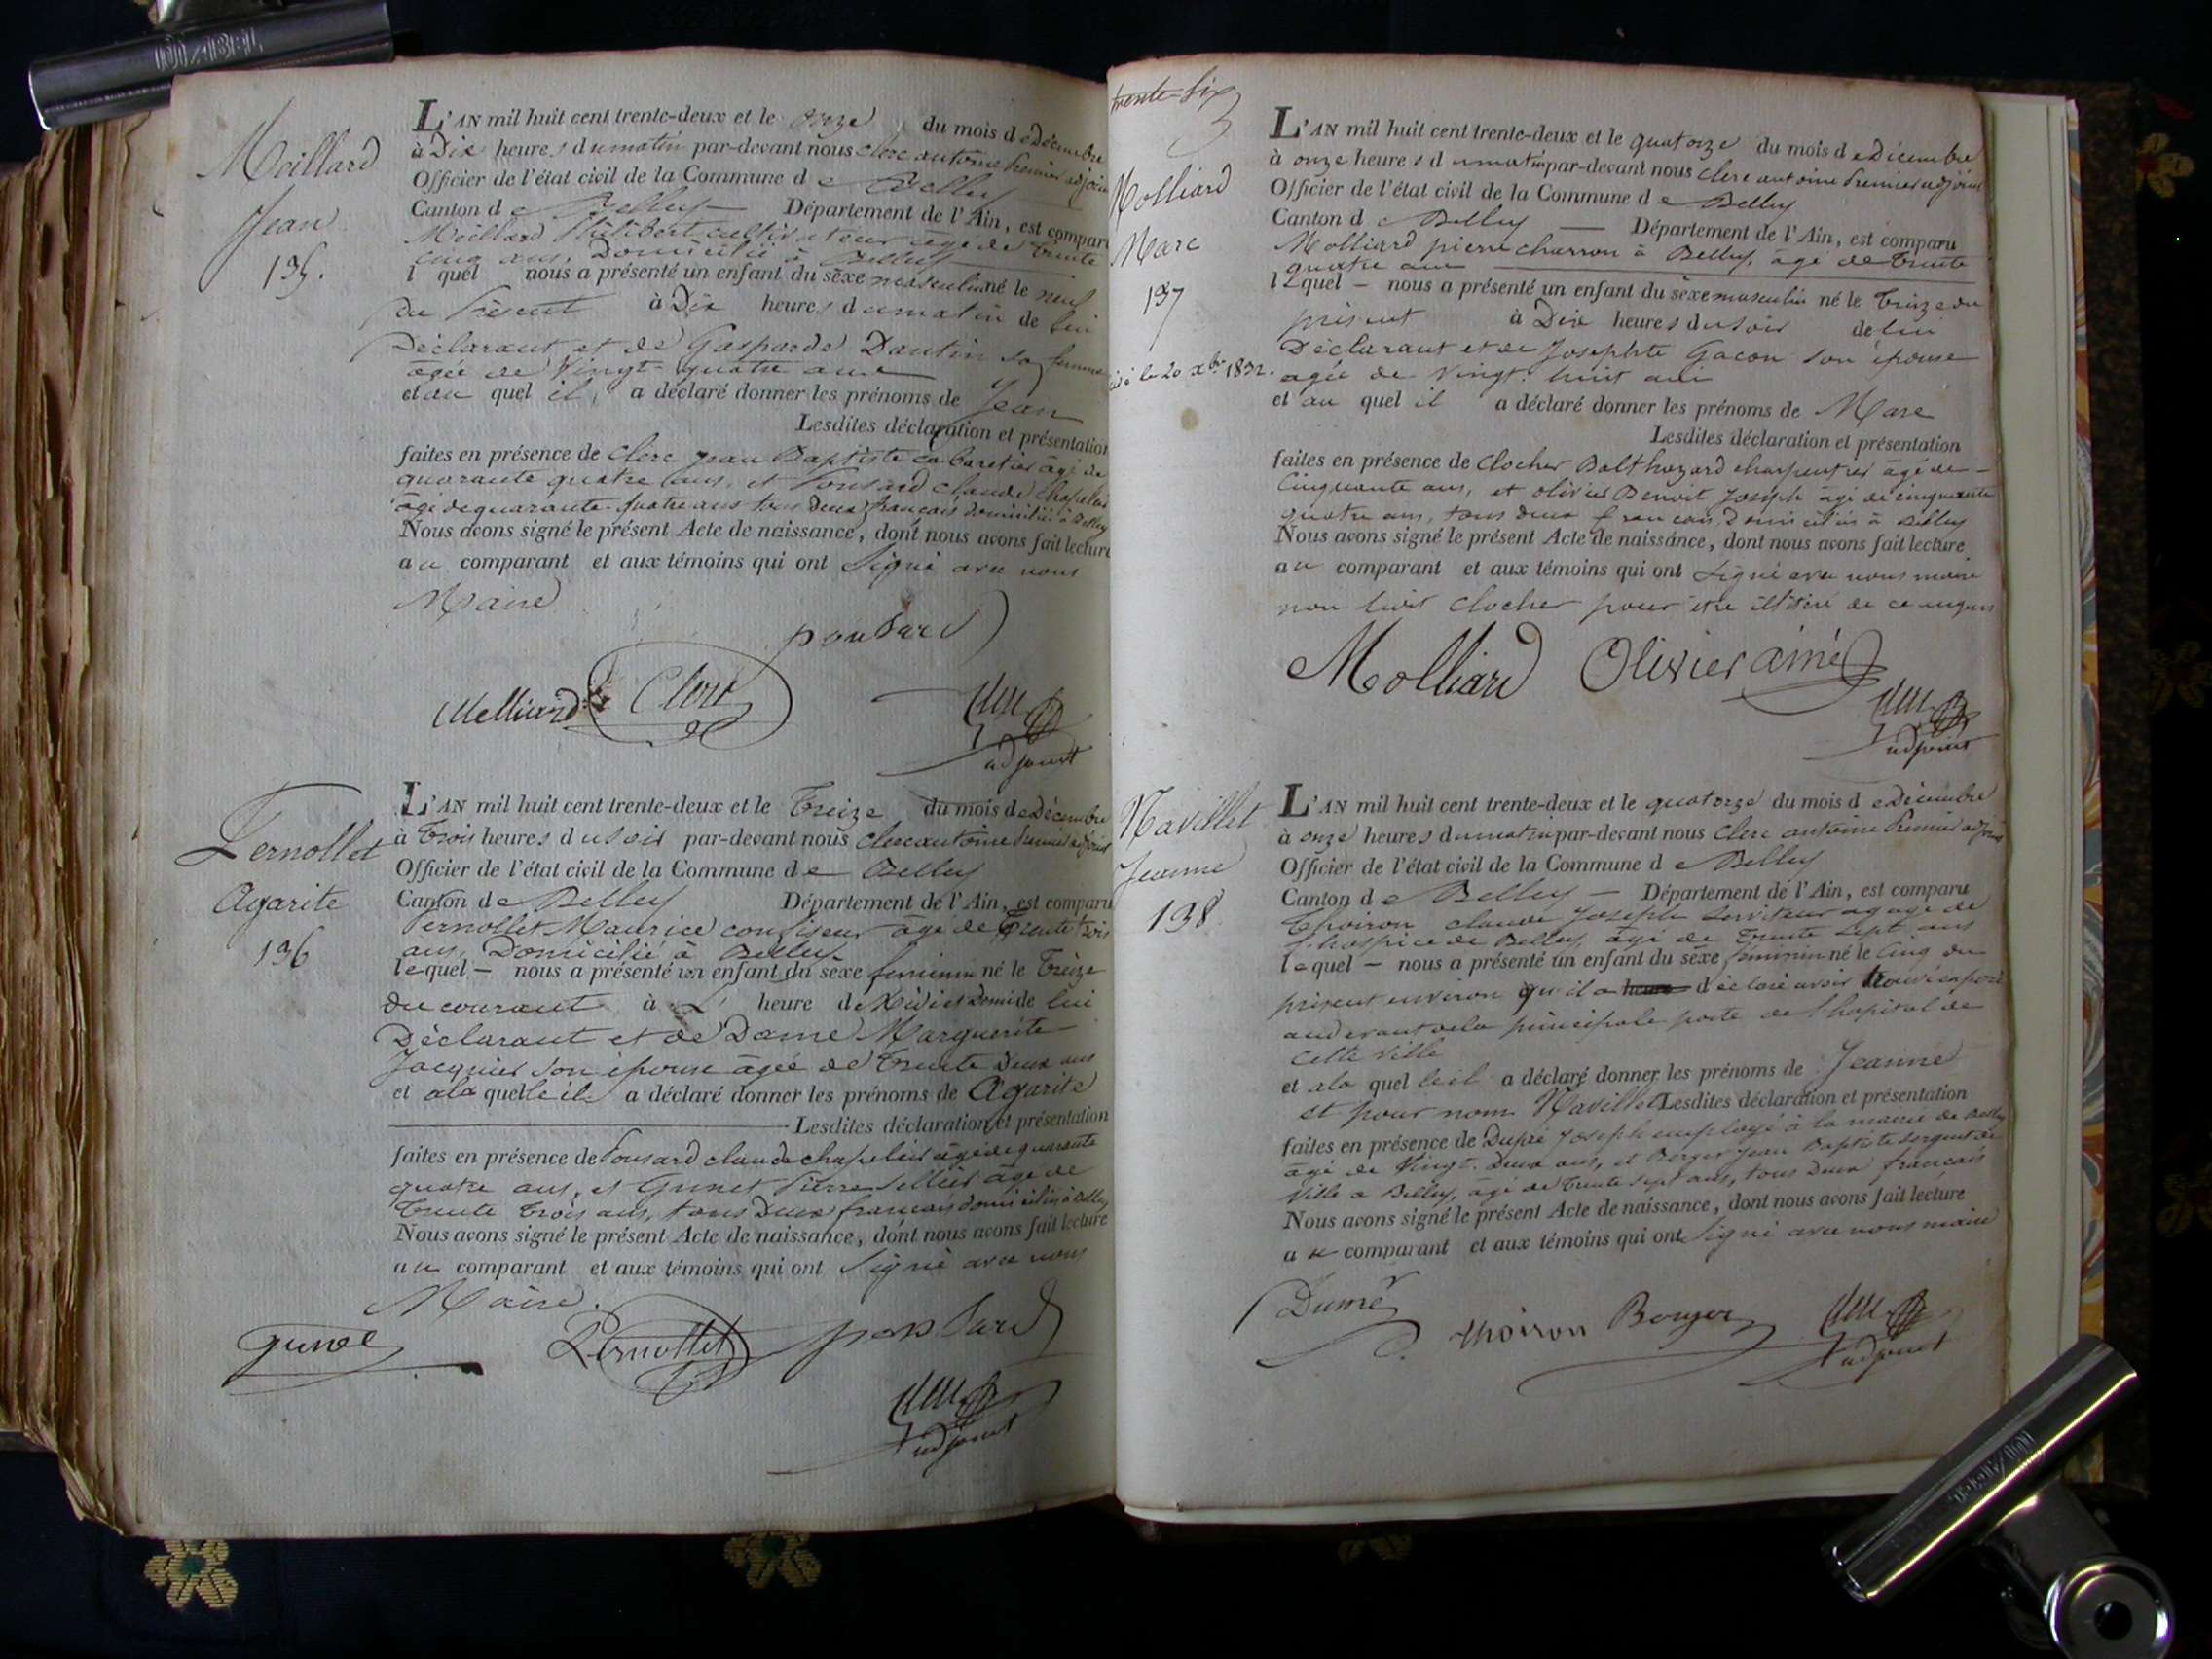 Meillard
Jean
135.
L'AN mil huit cent trente-deux et le onze du mois de Décembre
à Dix heures du matin par-devant nous Clerc antoine Premier adjoint
Officier de l'état civil de la Commune de Belley
Canton de Belley Département de l'Ain, est comparu
Meillard Philibert cultivateur âgé de trente
cinq ans, Domicilié à Belley
l quel nous a présenté un enfant du sèxe masculin né le neuf
du Présent à Dix heures du matin de lui
Déclarant et de Gasparde Dantin sa femme
agée de Vingt-quatre ans
et au quel il a déclaré donner les prénoms de Jean
Lesdites déclaration et présentation
faites en présence de Clerc Jean Baptiste cabaretier âgé de
quarante quatre ans, et Ponsard Claude Chapelier
âgé de quarante-quatre ans tous deux français domiciliés à Belley
Nous avons signé le présent Acte de naissance, dont nous avons fait lecture
au comparant et aux témoins qui ont Signé avec nous
Maire
ponsard
Melliard Clerc
adjoint
Pernollet
Agarite
136
L'AN mil huit cent trente-deux et le Treize du mois de Décembre
à Trois heures du soir par-devant nous Clerc antoine Premier adjoint
Officier de l'état civil de la Commune de Belley
Canton de Belley Département de l'Ain, est comparu
Pernollet Maurice confiseur âgé de Trente trois
ans, Domicilié à Belley
lequel – nous a présenté un enfant du sèxe feminin né le Treize
du courant à L' heure de Midi et Demi de lui
Déclarant et de Dame Marguerite
Jacquier son épouse âgée de Trente Deux ans
et a la quelle il a déclaré donner les prénoms de Agarite
Lesdites déclaration et présentation
faites en présence de Ponsard claude chapelier âgé de quarante
quatre ans, et Gunet Pierre Sellier âgé de
Trente Trois ans, tous Deux français domiciliés à Belley
Nous avons signé le présent Acte de naissance, dont nous avons fait lecture
au comparant et aux témoins qui ont Signé avec nous
Maire.
gunet Pernollet ponsard
adjoint
trente-six
Molliard
Marc
137
le 20 xbre 1832.
L'AN mil huit cent trente-deux et le quatorze du mois de Décembre
à onze heures du matin par-devant nous Clerc antoine Premier adjoint
Officier de l'état civil de la Commune de Belley
Canton de Belley — Département de l'Ain, est comparu
Molliard pierre charron à Belley, âgé de Trente
quatre ans
lequel – nous a présenté un enfant du sèxe masculin né le Treize du
présent à Dix heures du soir de lui
Déclarant et de Josephte Gacon son épouse
agée de Vingt-huit ans
et au quel il a déclaré donner les prénoms de Marc
Lesdites déclaration et présentation
faites en présence de Clocher Balthazard charpentier âgé de –
Cinquante ans, et olivier Benoit Joseph âgé de cinquante
quatre ans, tous deux français, domiciliés à Belley
Nous avons signé le présent Acte de naissance, dont nous avons fait lecture
au comparant et aux témoins qui ont signé avec nous maire
non ledit Clocher pour être illitéré de ce enquis
Molliard Olivier ainé
adjoint
Navillet
Jeanne
138
L'AN mil huit cent trente-deux et le quatorze du mois de Décembre
à onze heures du matin par-devant nous Clerc antoine Premier adjoint
Officier de l'état civil de la Commune de Belley
Canton de Belley – Département de l'Ain, est comparu
Thoiron claude Joseph serviteur a gage de
l'hospice de Belley, âgé de Trente sept ans
lequel – nous a présenté un enfant du sèxe féminin né le Cinq du
présent environ qu'il a heure déclaré avoir trouvé exposé
au devant de la principale porte de l'hopital de
cette Ville
et a la quel le il a déclaré donner les prénoms de Jeanne
et pour nom Navillet Lesdites déclaration et présentation
faites en présence de Dupré Joseph employé à la mairie de Belley
âgé de Vingt-Deux ans, et Berger Jean Baptiste sergent de
Ville à Belley, âgé de Trente sept ans, tous Deux français
Nous avons signé le présent Acte de naissance, dont nous avons fait lecture
au comparant et aux témoins qui ont signé avec nous maire
Dupré thoiron Berger
adjoint